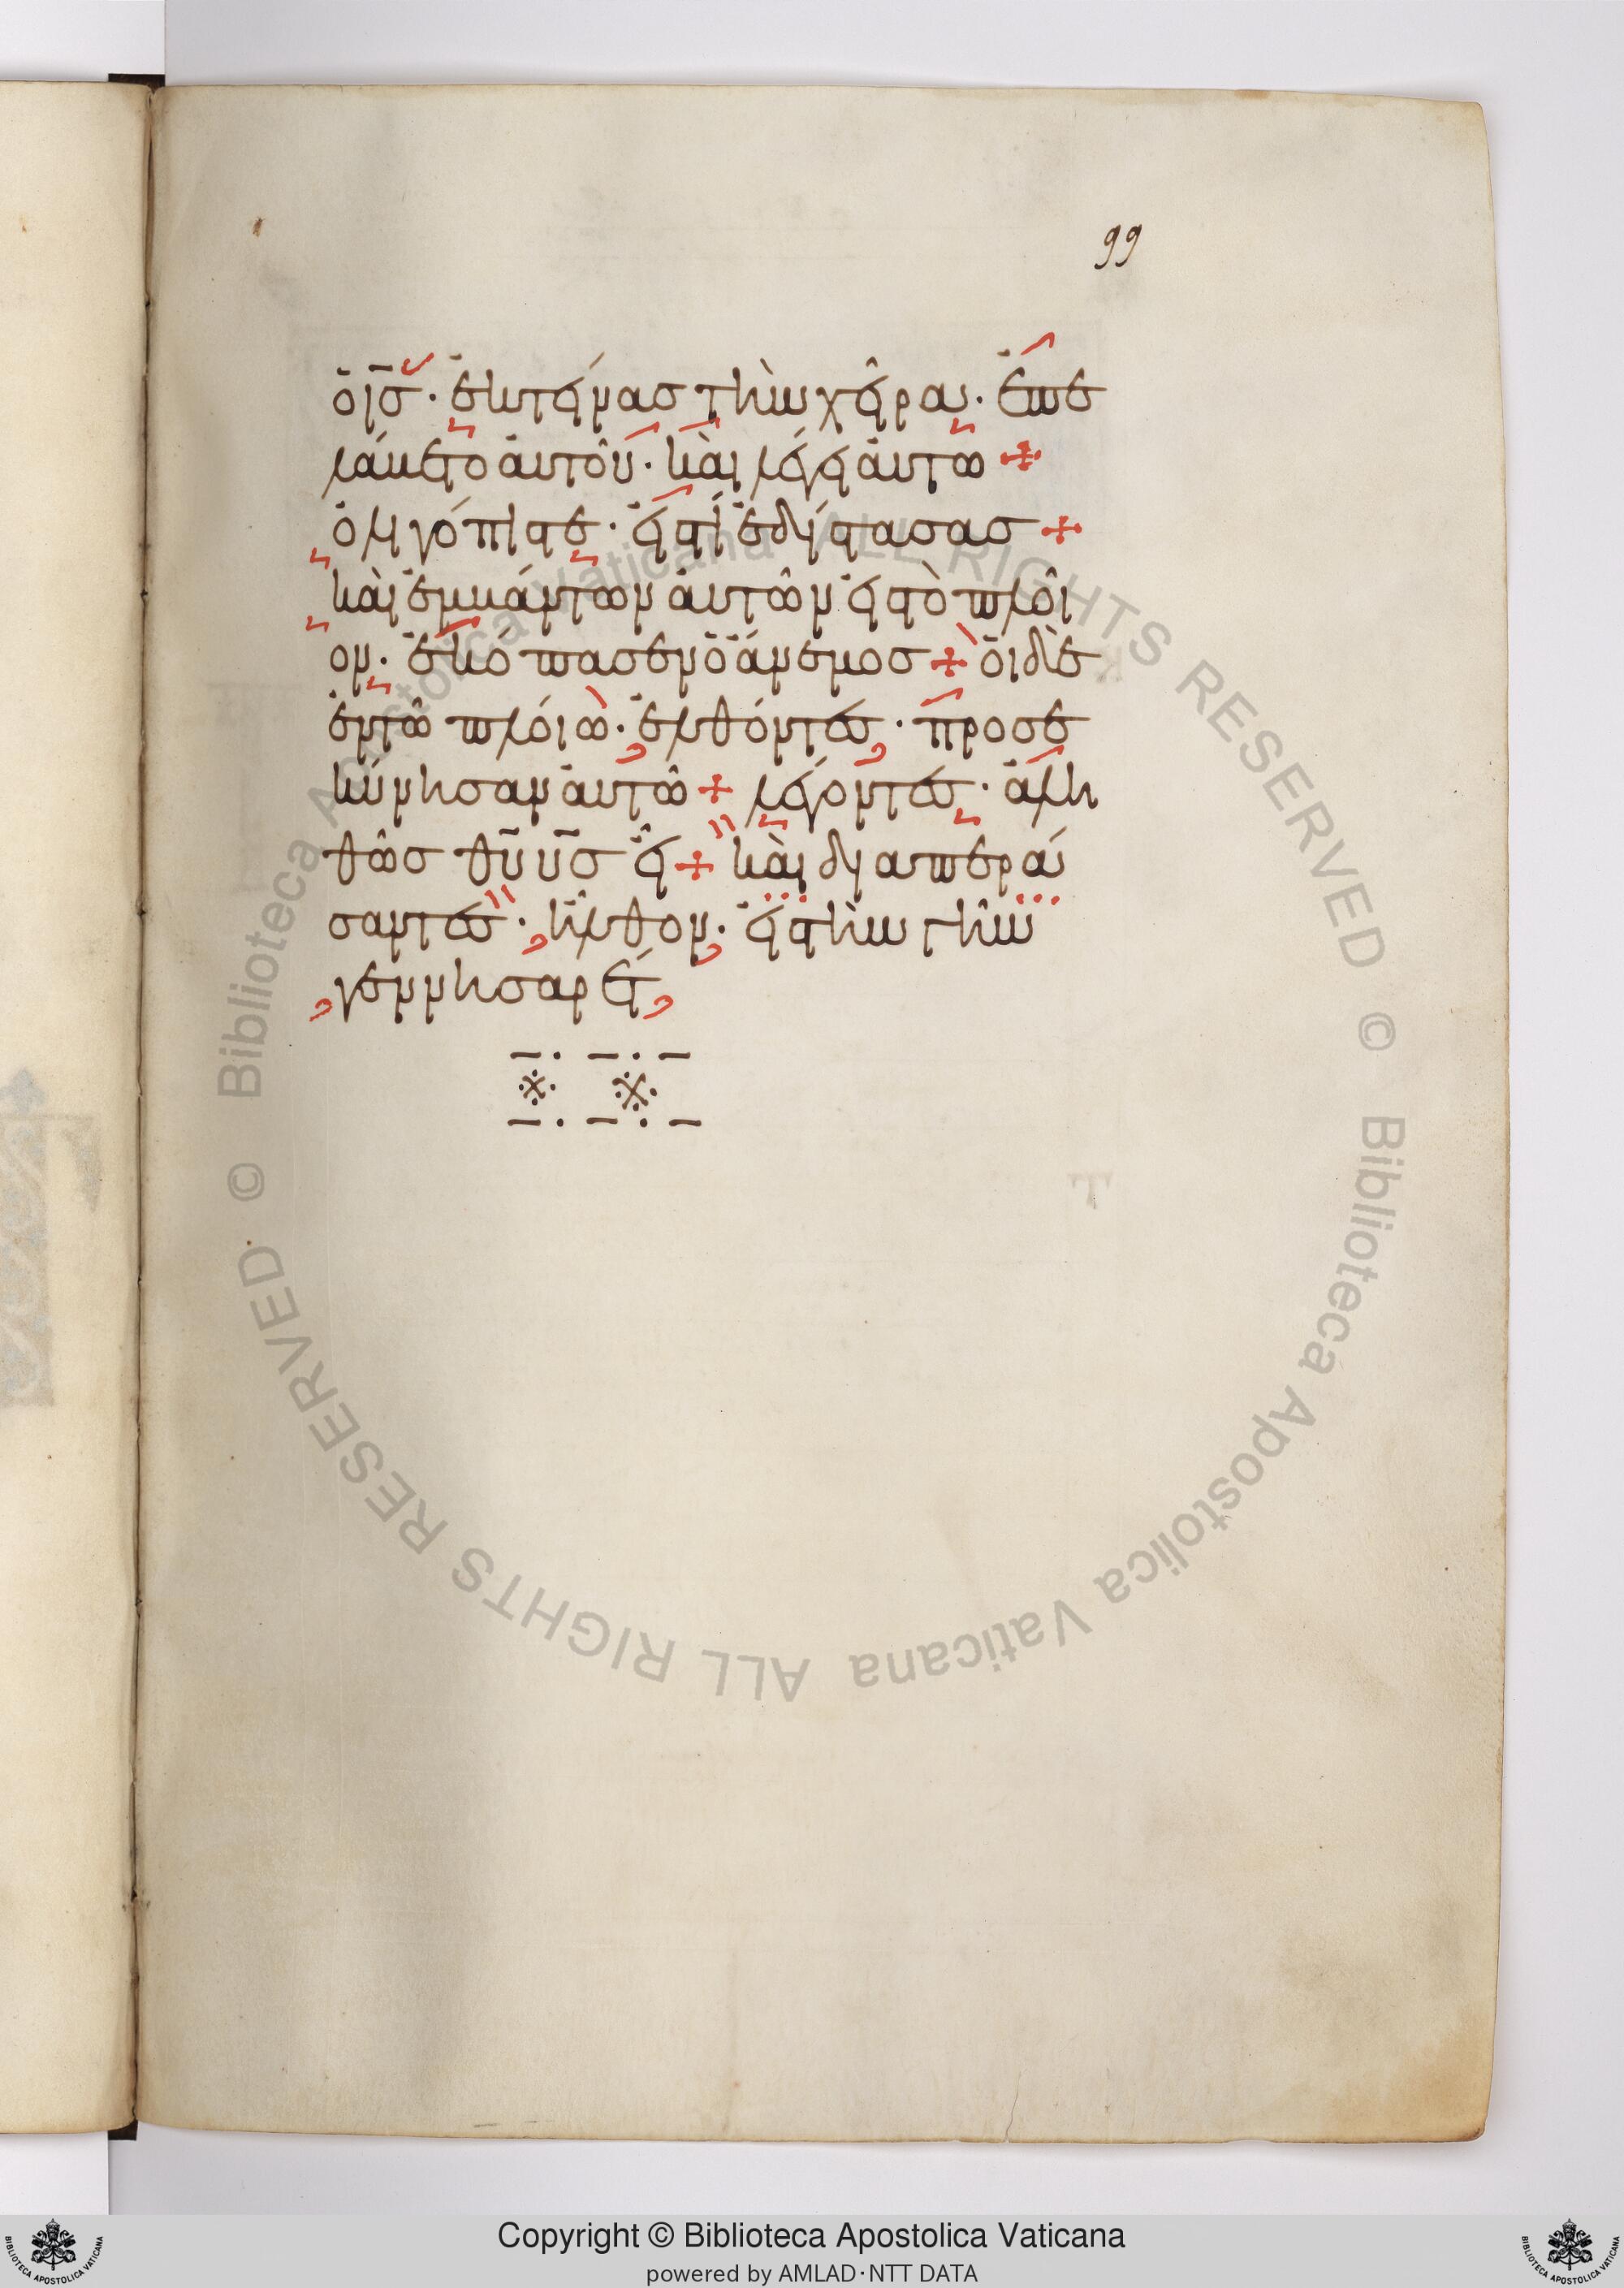 99
ὁ ι̅σ̅· ἐκτείνας τὴν χεῖραν· ἐπε
λάβετο αὐτοῦ· καὶ λέγει αὐτω +
ὀλιγόπιστε· εἰς τί ἐδίστασας +
καὶ ἐμβάντων αὐτῶν εἰς τὸ πλοῖ
ον· ἐκόπασεν ὁ ἄνεμος + οἱ δὲ
ἐν τῶ πλοίω· ἐλθόντες· προσε
κύνησαν αὐτῶ + λέγοντες· ἀλη
θῶς θ̅υ̅ υ̅σ̅ εἶ + καὶ διαπερά
σαντες· ἦλθον· εἰς τὴν γῆν
γεννησαρέτ
Copyright © Biblioteca Apostolica Vaticana
powered by AMLAD·NTT DATA
© Biblioteca Apostolica Vaticana ALL RIGHTS RESERVED © Biblioteca Apostolica Vaticana ALL RIGHTS RESERVED